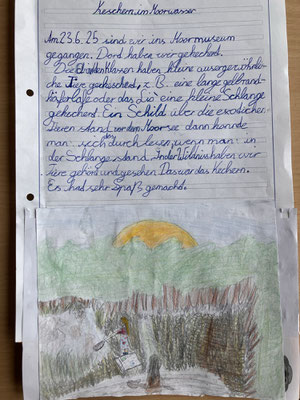 Keschern im Moorwasser
Am 23.6.25 sind wir ins Moormuseum
gegangen. Dord haben wir gekechert.
Die dritten Klassen haben kleine ausergewöhnli-
che Tiere gekeschert, z.B. eine large gelbrand-
käferlalfe oder das Lio eine kleine Schlange
gekechert. Ein Schild über die exotischen
Tieren stand vor dem Moorsee dann konnde
man sich das durch lesen, wenn man in
der Schlange stand. In der Wildnis haben wir
tiere gehört und gesehen. Das war das Kechern.
Es had sehr Spaß gemachd.